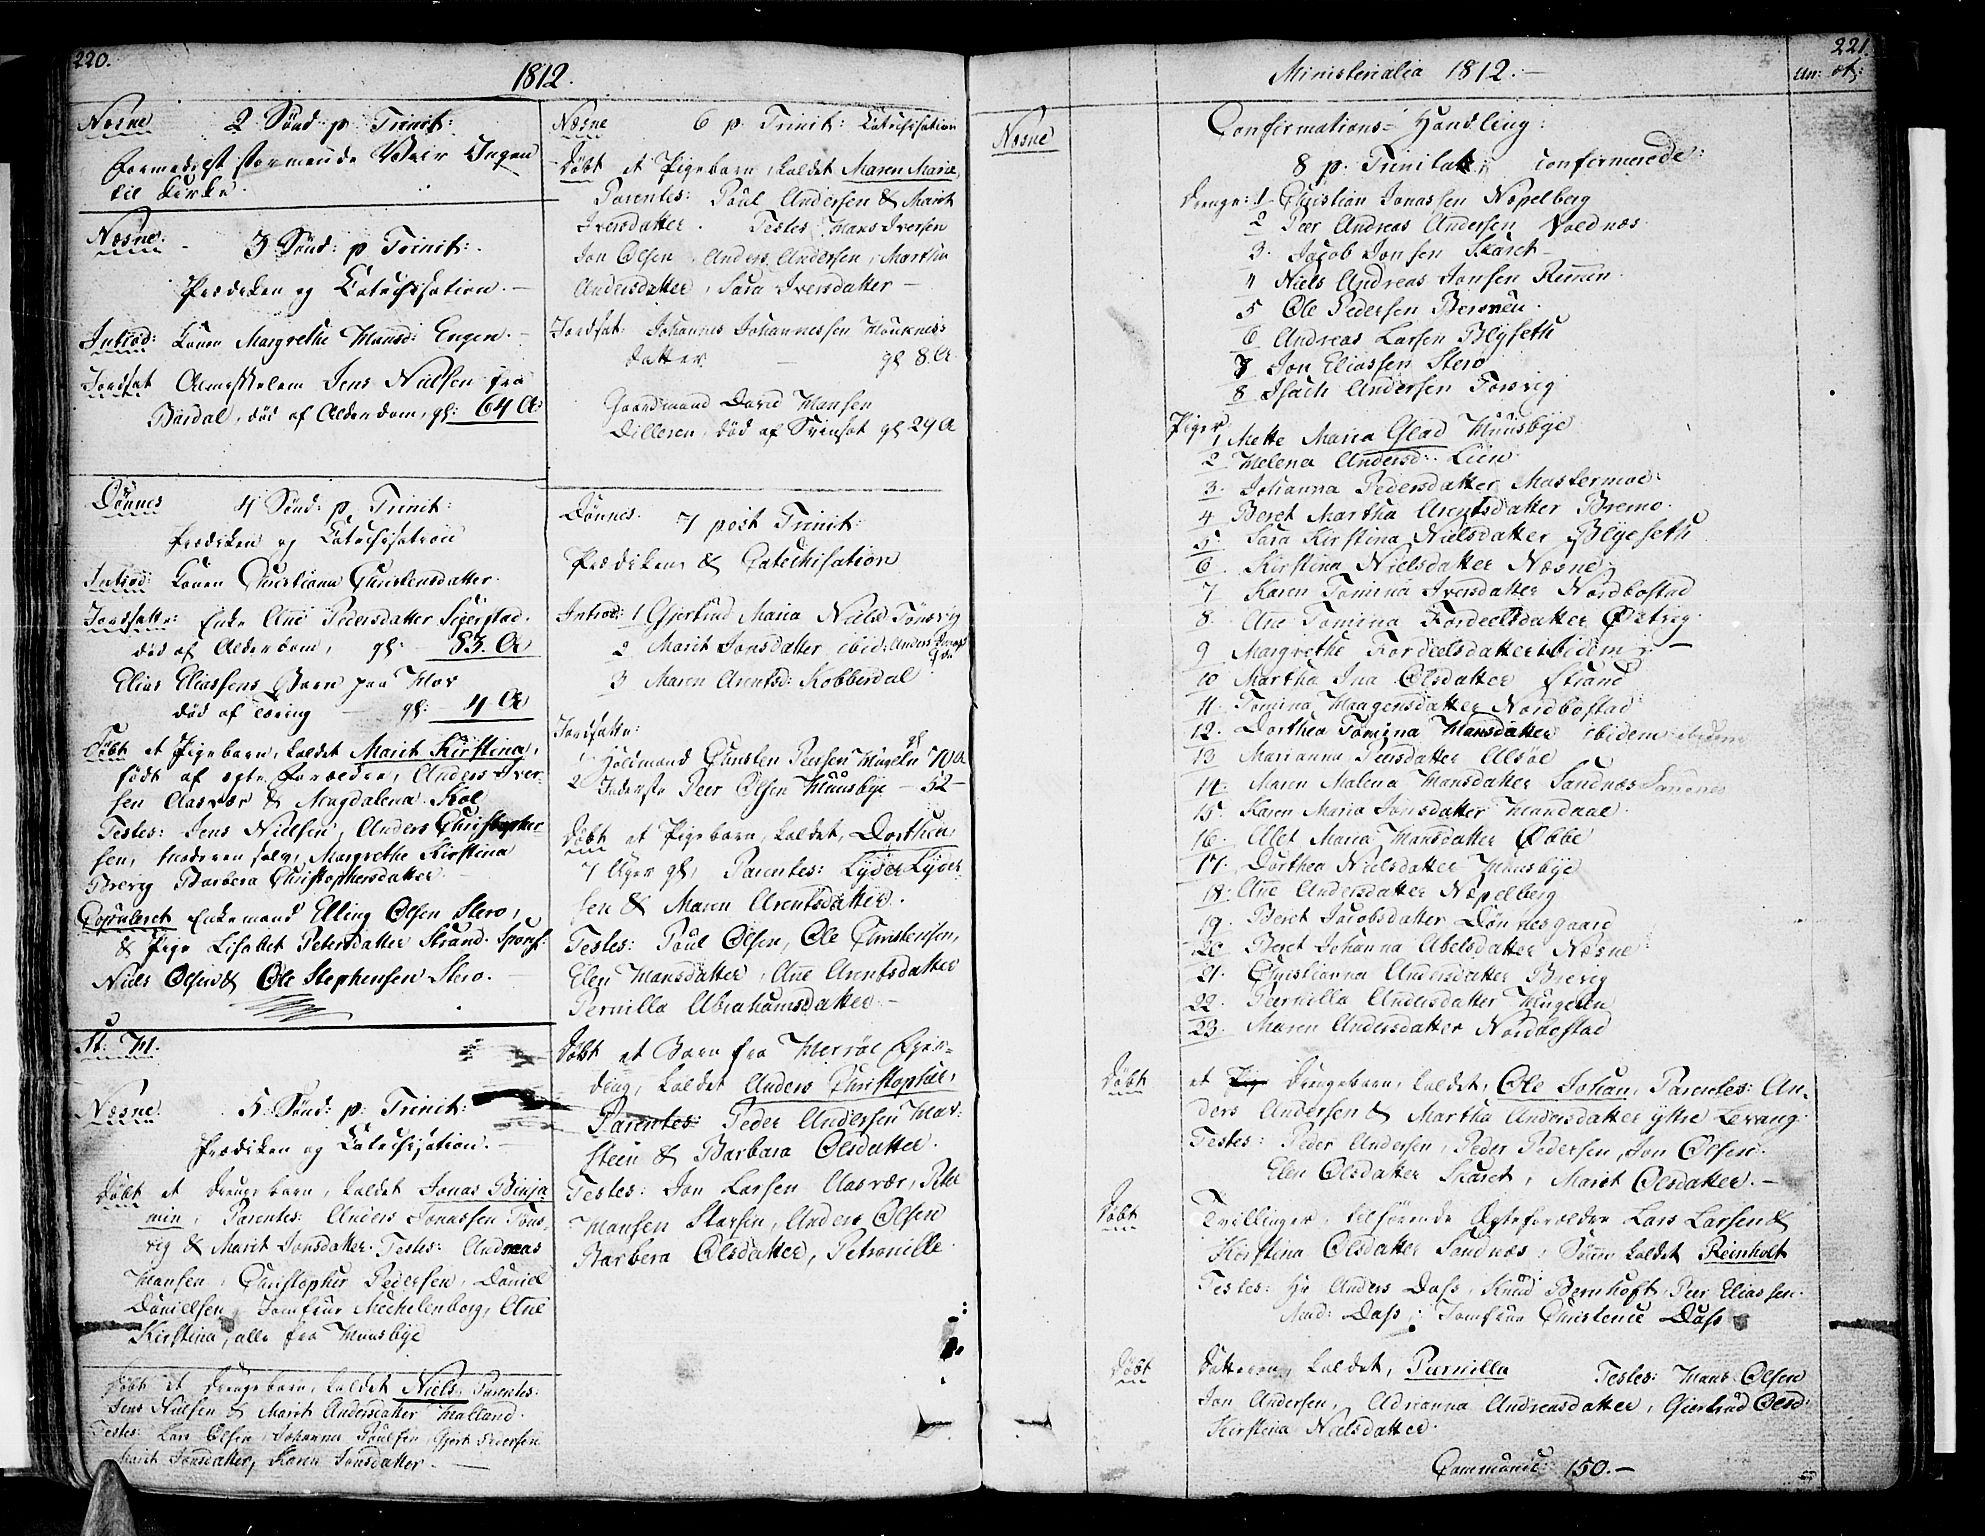 220.
1812.
Næsne 2 Sønd: p. Trinit:
formedelst stormende Veir Ingen
til Kirke.
Næsne. 3 Sønd: p. Trinit:
Prædiken og Catechisation.
Introd: Konen Margrethe Hansd: Engen.
Jordsat Almisselem Jens Nielsen fra
Bardal, død af Alderdom, gl: 64 A:
Dønnes 4 Sønd: p. Trinit:
Prædiken og Catechisation
Introd: Konen Christiana Christensdatter.
Jordsatte: Enke Ane Pedersdatter Seierstad.
død af Alderdom, gl: 83. A
Elias Eliassens Barn paa Hov
død af Tæring gl: 4 A
Døbt et Pigebarn, kaldet Marit Kirstina,
født af ægte Forældre, Anders Iver-
sen Aasvær & Magdalena
Testes: Jens Nielsen, Anders Christopher-
sen, Faderen selv, Margrethe Kirstina
Brevig Barbera Christophersdatter
Copuleret Enkemand Elling Olsen Stero,
& Pige Lisabet Petersdatter Strand. Spons:
Niels Olsen & Ole Stephensen Stero.
St: H.
Næsne 5. Sønd: p: Trinit:
Prædiken og Catechisation.
Døbt et Drengebarn, kaldet Jonas Binja
min, Parentes: Anders Jonassen Tøns-
vig & Marit Jonsdatter. Testes: Andreas
Hansen, Christopher Pedersen, Daniel
Danielsen, Jomfrue Mechelenborg, Ane
Kirstina, alle fra Huusbye
Døbt et Drengebarn, kaldet Niels, Parentes:
Jens Nielsen & Marit Andersdatter Halland.
Testes: Lars Olsen, Johannes Poulsen, Gjert Iversen
Marit Jonsdatter, Karen Jonsdatter.
Næsne 6 p. Trinit: Catechisation
Døbt et Pigebarn, kaldet Maren Maria,
Parentes: Poul Andersen & Marit
Iversdatter. Testes Hans Iversen
Jon Olsen, Anders Andersen, Martha
Andersdatter, Sara Iversdatter
Jordsat: Johannes Johannessen
datter gl 8. A.
Gaardmand David Hansen
Dilleren, død af gl 29 A
Dønnes. 7 post Trinit:
Prædiken & Catechisation
Introd: 1 Gjertrud Maria Niels Tønsvig
2 Marit Jonsdatter ibid:
3 Maren Arentsd: Kobberdal
Jordsatte:
1 Christen Peersen Hugeln gl 70 A
2 Inderste Peer Olsen Huusbye 52
Døbt et Pigebarn, kaldet, Dorthea
7 Uger gl, Parentes: Lyder Lyder-
sen & Maren Arentsdatter.
Testes: Poul Olsen, Ole Christensen,
Elen Hansdatter, Ane Arentsdatter
Pernilla Abrahamsdatter.
Døbt et Barn fra Herrøe
kaldet Anders Christopher,
Parentes: Peder Andersen Hav-
steen & Barbara Olsdatter.
Testes: Jon Larsen Aasvær, Peter
Hansen Anders Olsen
Barbera Olsdatter, Petronille
221.
Ministerialia 1812.
Næsne Confirmations-Handling:
8 p. Trinitat: confirmerede:
Drenge: 1 Christian Jonassen Næpelberg
2 Peer Andreas Andersen Voldnæs
3. Jacob Jonsen Skaret
4 Niels Andreas Jonsen Remen
5 Ole Pedersen
6 Andreas Larsen Blyseth
7 Jon Eliassen Stero
8 Isach Andersen Forsvig
Piger
1 Mette Maria Glad Huusbye
2 Helena Andersd: Lien
3. Johanna Pedersdatter Mastermoe:
4 Beret Martha Arentsdatter Bremo.
5 Sara Kirstina Nielsdatter Blyeseth
6 Kirstina Nielsdatter Næsne
7 Karen Tomina Iversdatter Nordbostad
8. Ane Tomina Fordeelsdatter
9 Margrethe Fordeelsdatter ibidem
10 Martha Ina Olsdatter Strand
11. Tomina Haagensdatter Nordbostad
12. Dorthea Tomina Hansdatter ibidem
13 Marianna Peersdatter Alsøe
14 Maren Malena Hansdatter Sandnæs
15. Karen Maria Jonsdatter Handnæe
16. Alet Maria Hansdatter
17. Dorthea Nielsdatter Huusbye
18: Ane Andersdatter Næpelberg
19. Beret Jacobsdatter Dønnesgaard
20 Beret Johanna Abelsdatter Næsne
21. Christianna Andersdatter Brevig
22. Pernilla Andersdatter Hugelen
23. Maren Andersdatter Nordbostad
Døbt et Drengebarn, kaldet, Ole Johan, Parentes: An-
ders Andersen & Martha Andersdatter yttre Levang.
Testes: Peder Andersen, Peder Pedersen, Jon Olsen.
Elen Olsdatter Skaret, Marit Olsdatter.
Døbt Tvillinger, tilhørende Ægteforældre Lars Larsen &
Kirstina Olsdatter Sandnæs, Sønn kaldet Reinholt
Testes: Hr Anders Dass, Knud Bernhoft, Peer Eliassen.
Mad: Dass, Jomfrue Christence Dass
Døbt Datteren, kaldet, Pernilla Testes: Hans Olsen
Jon Andersen, Adrianna Andreasdatter, Giertrud Olsd:
Kirstina Nielsdatter.
Communic: 150.